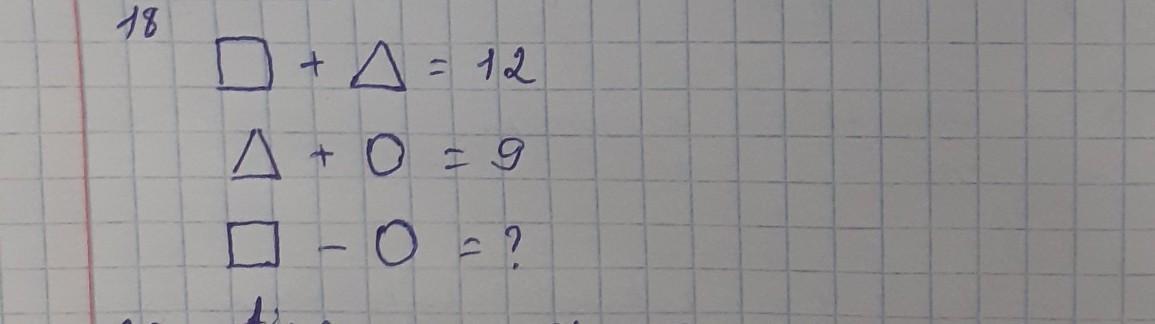 18
□ + △ = 12
△ + ○ = 9
□ - ○ = ?